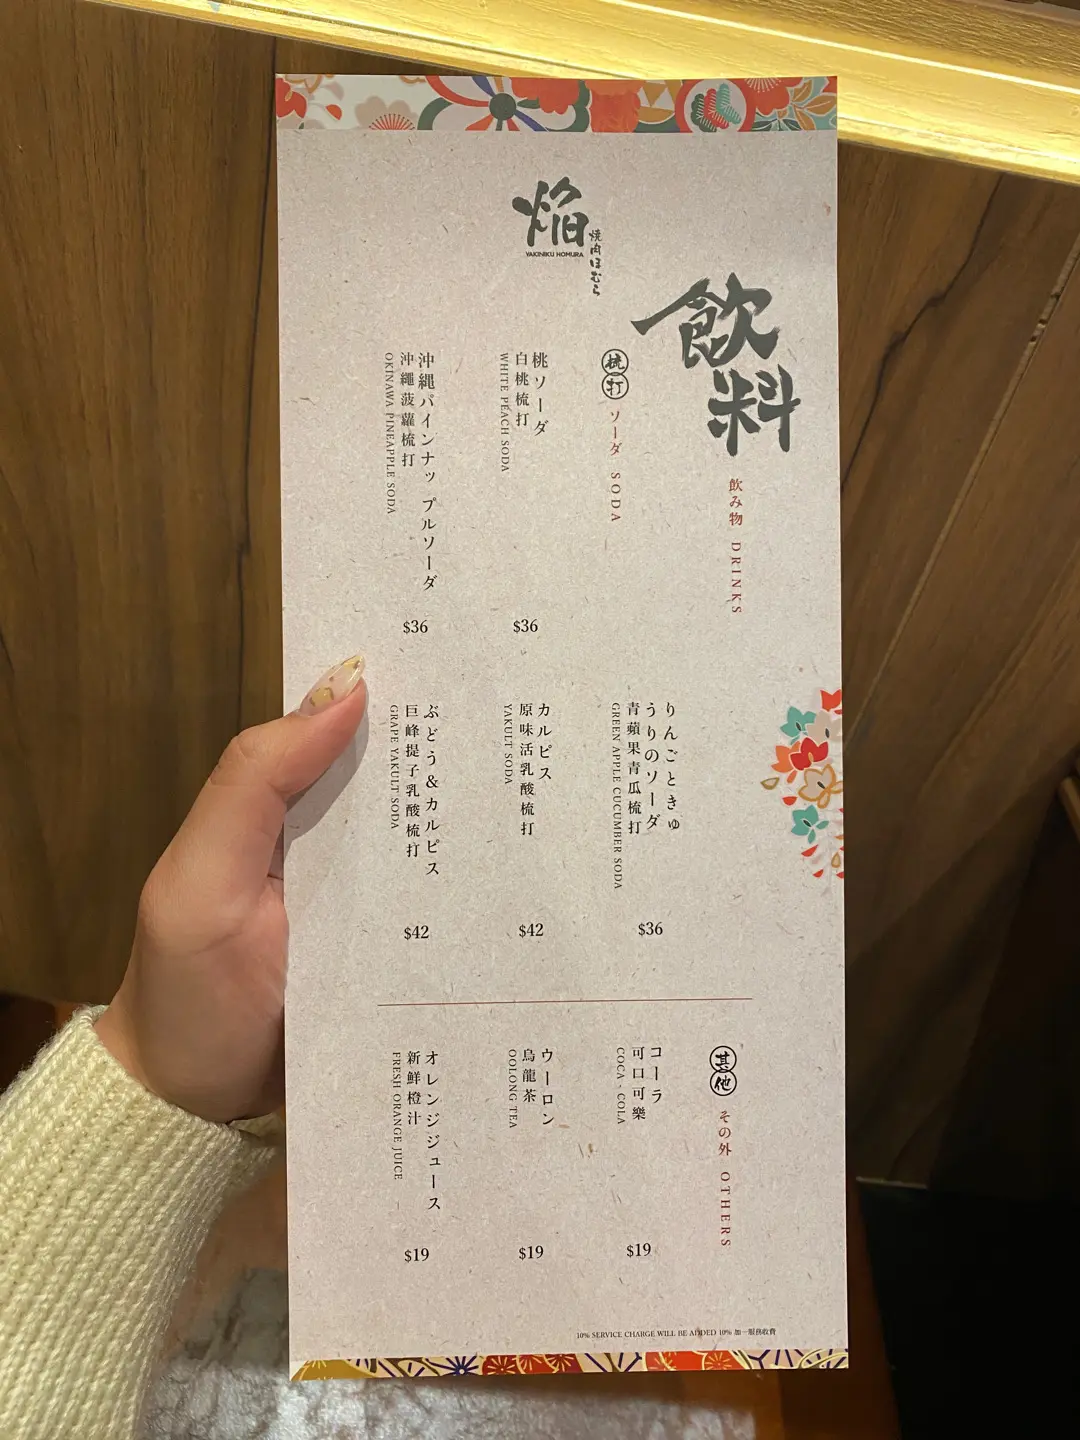 焔
YAKINIKU HOMURA
焼肉ほむら
飲料
飲み物 DRINKS
梳打
ソーダ SODA
桃ソーダ
白桃梳打
WHITE PEACH SODA
$36
沖縄パインナッ プルソーダ
沖繩菠蘿梳打
OKINAWA PINEAPPLE SODA
$36
りんごときゅ
うりのソーダ
青蘋果青瓜梳打
GREEN APPLE CUCUMBER SODA
$36
カルピス
原味活乳酸梳打
YAKULT SODA
$42
ぶどう&カルピス
巨峰提子乳酸梳打
GRAPE YAKULT SODA
$42
其他
その外 OTHERS
コーラ
可口可樂
COCA - COLA
$19
ウーロン
烏龍茶
OOLONG TEA
$19
オレンジジュース
新鮮橙汁
FRESH ORANGE JUICE
$19
10% SERVICE CHARGE WILL BE ADDED 10% 加一服務收費